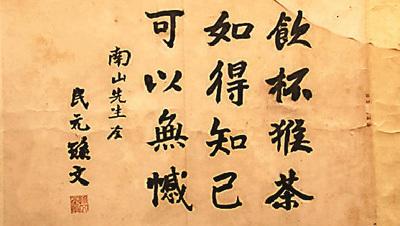 飲杯猴茶
如得知己
可以無憾
南山先生
民元孫文